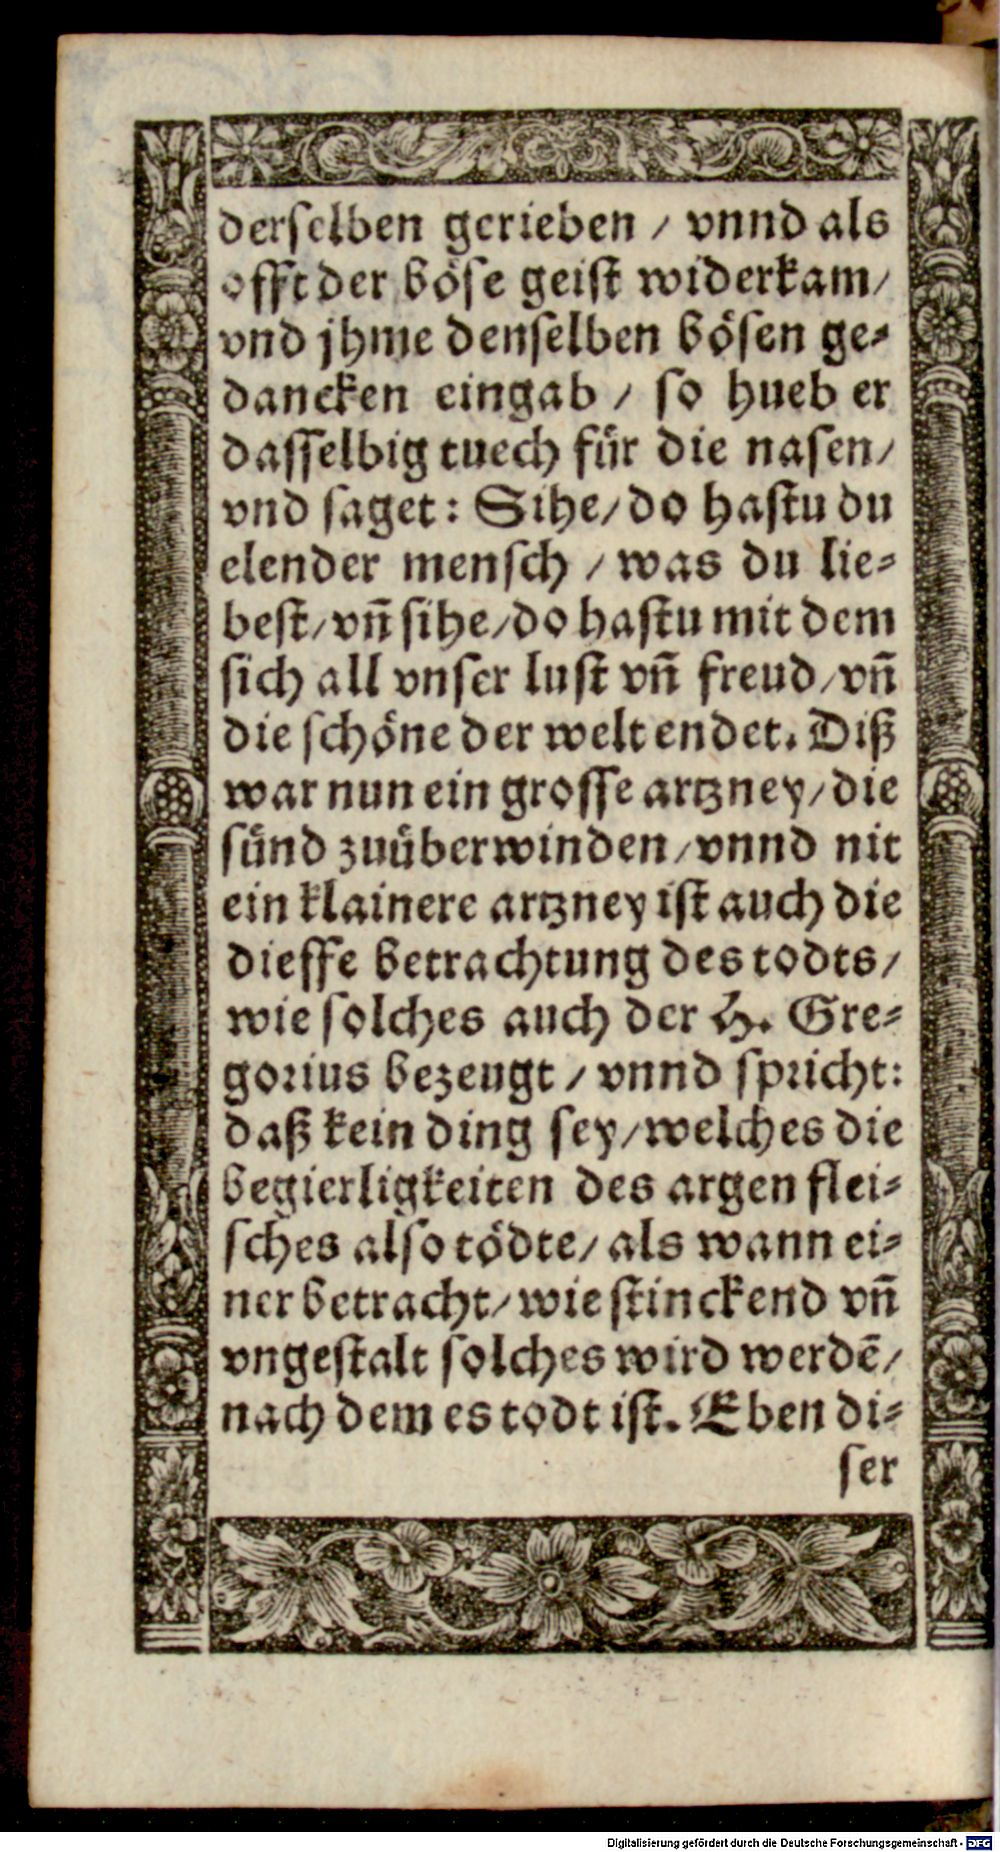 derselben gerieben / vnnd als
offt der böse geist widerkam /
vnd jhme denselben bösen ge-
dancken eingab / so hueb er
dasselbig tuech für die nasen /
vnd saget: Sihe / do hastu du
elender mensch / was du lie-
best / vñ sihe / do hastu mit dem
sich all vnser lust vñ freud / vñ
die schöne der welt endet. Diß
war nun ein grosse artzney / die
sünd zuüberwinden / vnnd nit
ein klainere artzney ist auch die
dieffe betrachtung des todts /
wie solches auch der H. Gre-
gorius bezeugt / vnnd spricht:
daß kein ding sey / welches die
begierligkeiten des argen flei-
sches also tödte / als wann ei-
ner betracht / wie stinckend vñ
vngestalt solches wird werdẽ /
nach dem es todt ist. Eben di-
ser
Digitalisierung gefördert durch die Deutsche Forschungsgemeinschaft - DFG